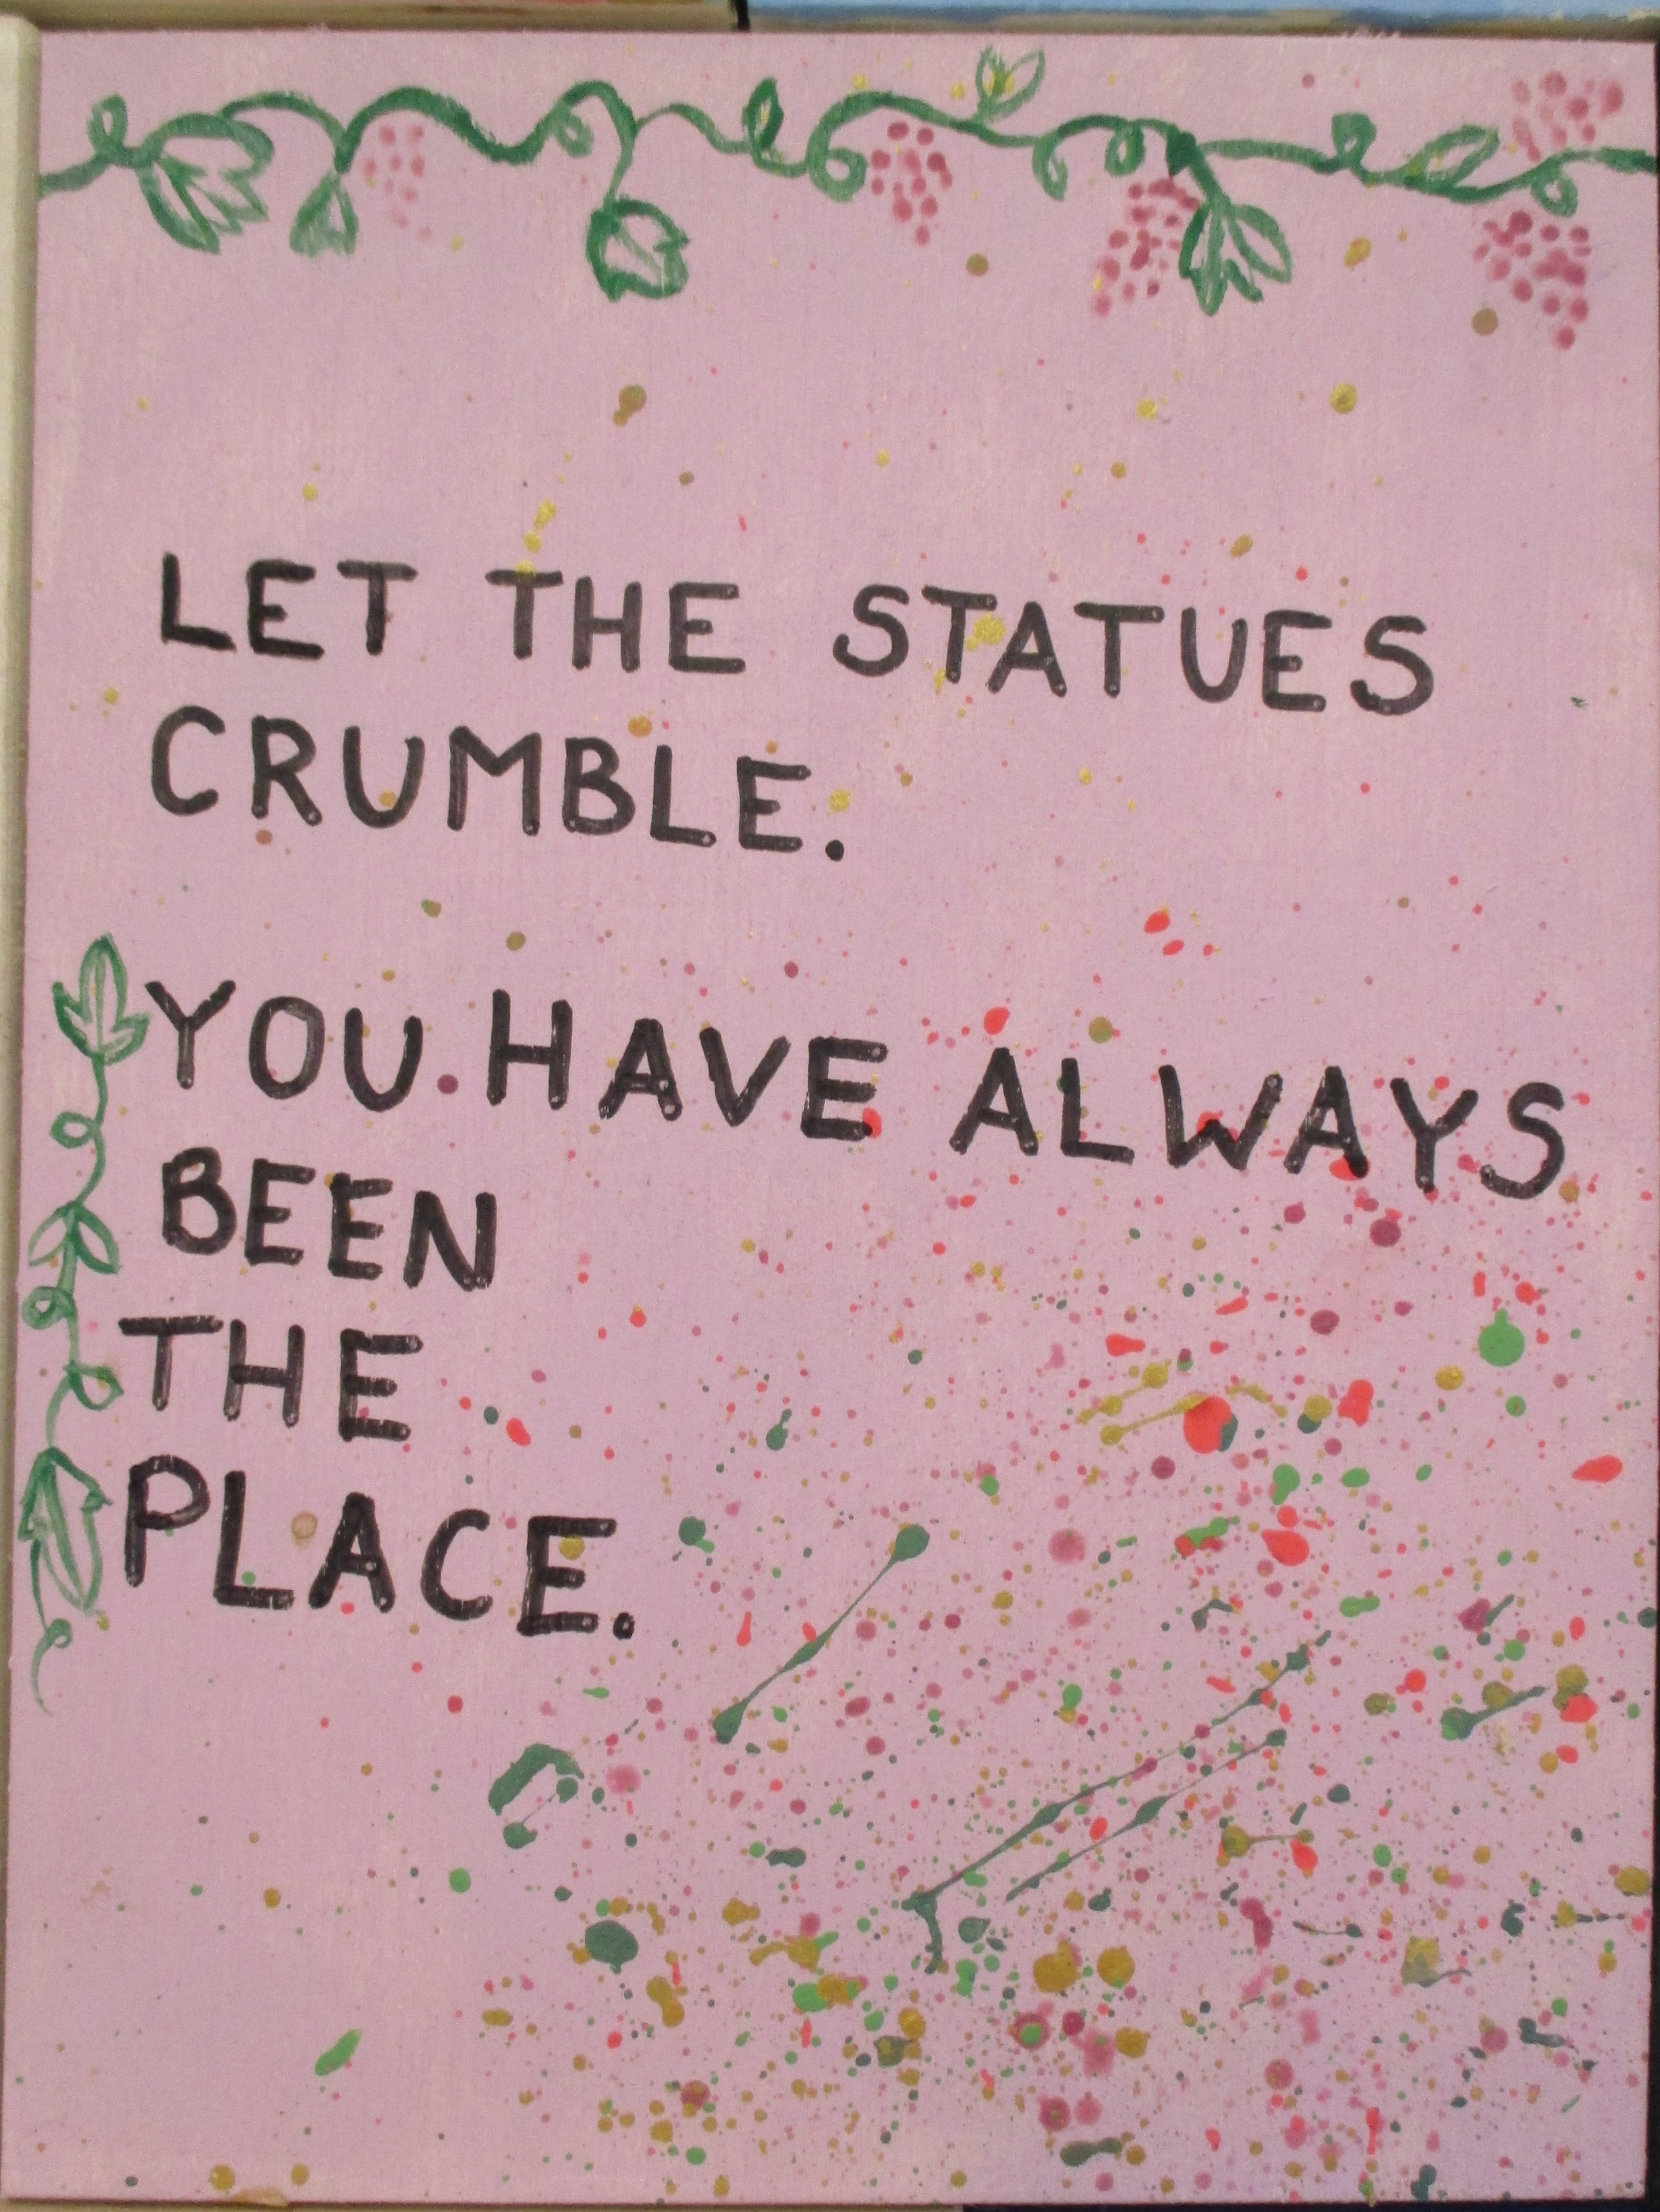 LET THE STATUES
CRUMBLE.
YOU HAVE ALWAYS
BEEN
THE
PLACE.